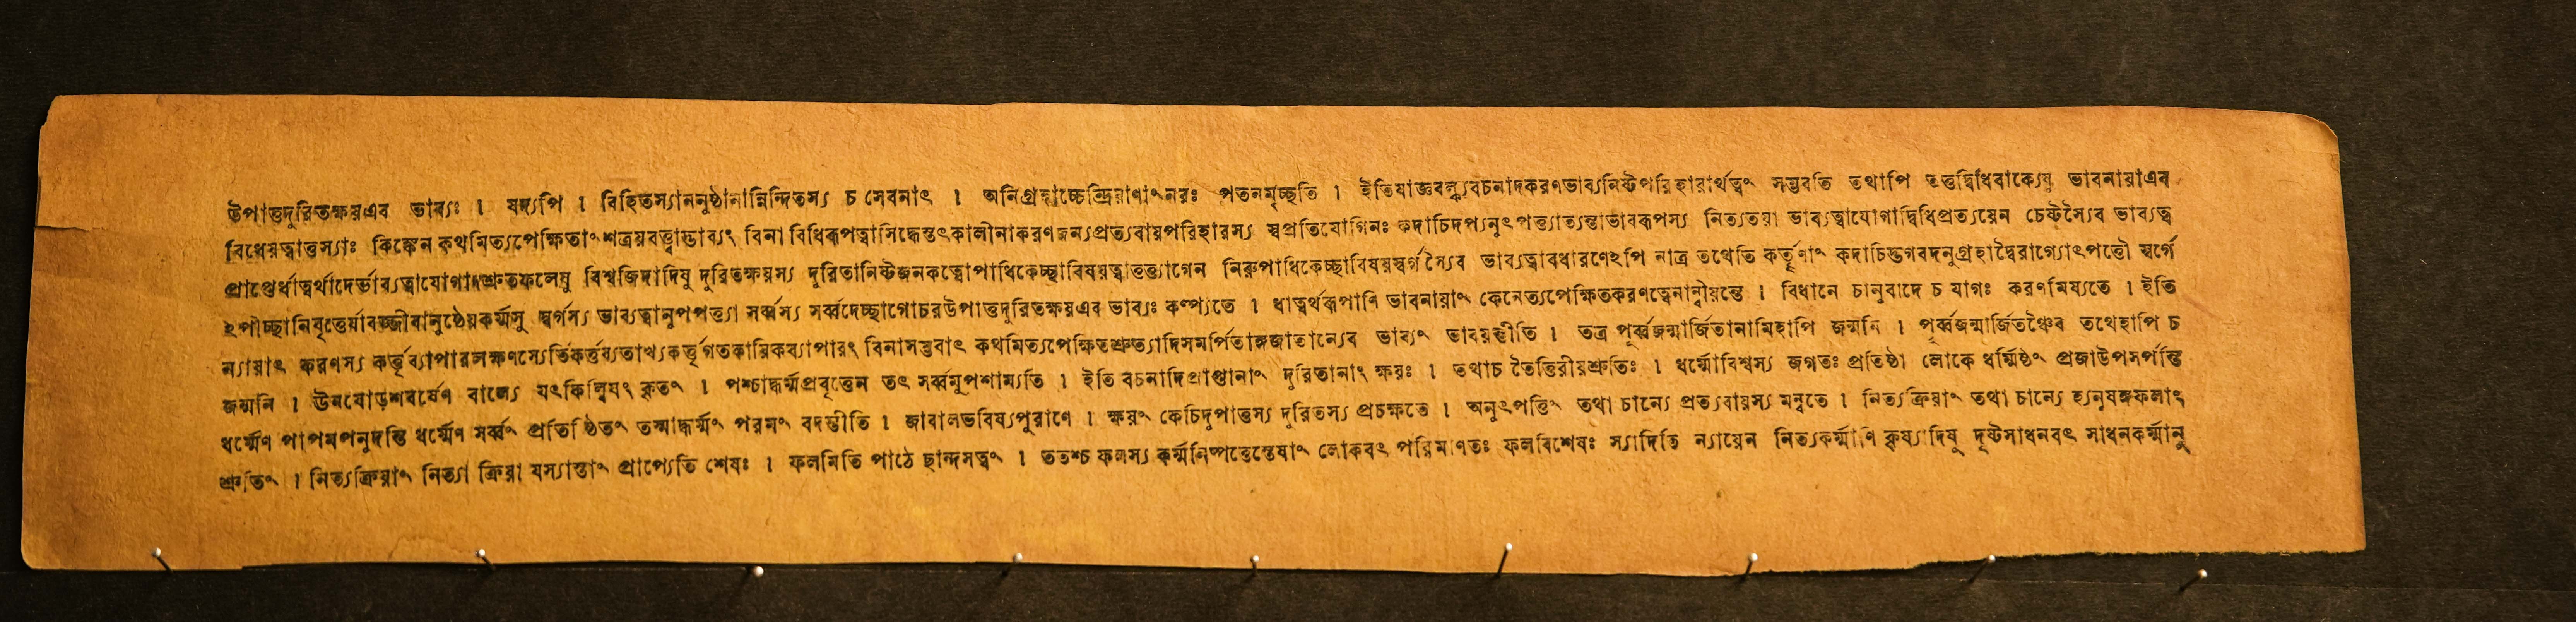 উপাত্তদুরিতক্ষয়এব ভাব্যঃ । যদ্যপি । বিহিতস্যাননুষ্ঠানান্নিন্দিতস্য চ সেবনাৎ । অনিগ্রহাচ্চেন্দ্রিয়াণাংনরঃ পতনমৃচ্ছতি । ইতিযাজ্ঞবল্ক্যবচনাদকরণভাব্যনিষ্টপরিহারার্থত্বং সম্ভবতি তথাপি তত্তদ্বিধিবাক্যেষু ভাবনায়াএব
বিধেয়ত্বাত্তস্যাঃ কিঙ্কেন কথমিত্যপেক্ষিতাংশত্রয়বত্ত্বাদ্ভাব্যং বিনা বিধিরূপত্বাসিদ্ধেস্তৎকালীনাকরণজন্যপ্রত্যবায়পরিহারস্য স্বপ্রতিযোগিনঃ কদাচিদপ্যনুৎপত্ত্যাত্যন্তাভাবরূপস্য নিত্যতয়া ভাব্যত্বাযোগাদ্বিধিপ্রত্যয়েন চেষ্টস্যৈব ভাব্যত্ব
প্রাপ্তের্ধাত্বর্থাদের্ভাব্যত্বাযোগাদশ্রুতফলেষু বিশ্বজিদাদিষু দুরিতক্ষয়স্য দুরিতানিষ্টজনকত্বোপাধিকেচ্ছাবিষয়ত্বাত্তত্ত্যাগেন নিরুপাধিকেচ্ছাবিষয়স্বর্গস্যৈব ভাব্যত্বাবধারণেঽপি নাত্র তথেতি কর্তৄণাং কদাচিদ্ভগবদনুগ্রহাদ্বৈরাগ্যোৎপত্তৌ স্বর্গে
ঽপীচ্ছানিবৃত্তের্যাবজ্জীবানুষ্ঠেয়কর্ম্মসু স্বর্গস্য ভাব্যত্বানুপপত্ত্যা সর্ব্বস্য সর্ব্বদেচ্ছাগোচরউপাত্তদুরিতক্ষয়এব ভাব্যঃ কল্প্যতে । ধাত্বর্থরূপাণি ভাবনায়াং কেনেত্যপেক্ষিতকরণত্বেনান্বীয়ন্তে । বিধানে চানুবাদে চ যাগঃ করণমিষ্যতে । ইতি
ন্যায়াৎ করণস্য কর্ত্তৃব্যাপারলক্ষণস্যেতিকর্ত্তব্যতাখ্যকর্ত্তৃগতকায়িকব্যাপারং বিনাসম্ভবাৎ কথমিত্যপেক্ষিতশ্রুত্যাদিসমর্পিতাঙ্গজাতান্যেব ভাব্যং ভাবয়ন্তীতি । তত্র পূর্ব্বজন্মার্জিতানামিহাপি জন্মনি । পূর্ব্বজন্মার্জিতঞ্চৈব তথেহাপি চ
জন্মনি । ঊনষোড়শবর্ষেণ বাল্যে যৎকিল্বিষং কৃতং । পশ্চাদ্ধর্ম্মপ্রবৃত্তেন তৎ সর্ব্বমুপশাম্যতি । ইতি বচনাদিপ্রাপ্তানাং দুরিতানাং ক্ষয়ঃ । তথাচ তৈত্তিরীয়শ্রুতিঃ । ধর্ম্মোবিশ্বস্য জগতঃ প্রতিষ্ঠা লোকে ধর্ম্মিষ্ঠং প্রজাউপসর্পন্তি
ধর্ম্মেণ পাপমপনুদন্তি ধর্ম্মেণ সর্ব্বং প্রতিষ্ঠিতং তস্মাদ্ধর্ম্মং পরমং বদন্তীতি । জাবালভবিষ্যপুরাণে । ক্ষয়ং কেচিদুপাত্তস্য দুরিতস্য প্রচক্ষতে । অনুৎপত্তিং তথা চান্যে প্রত্যবায়স্য মন্বতে । নিত্যক্রিয়াং তথা চান্যে হ্যনুষঙ্গফলাং
শ্রুতিং । নিত্যক্রিয়াং নিত্যা ক্রিয়া যস্যাস্তাং প্রাপ্যেতি শেষঃ । ফলমিতি পাঠে ছান্দসত্বং । ততশ্চ ফলস্য কর্ম্মনিষ্পত্তেস্তেষাং লোকবৎ পরিমাণতঃ ফলবিশেষঃ স্যাদিতি ন্যায়েন নিত্যকর্ম্মাণি কৃষ্যাদিষু দৃষ্টসাধনবৎ সাধনকর্ম্মানু